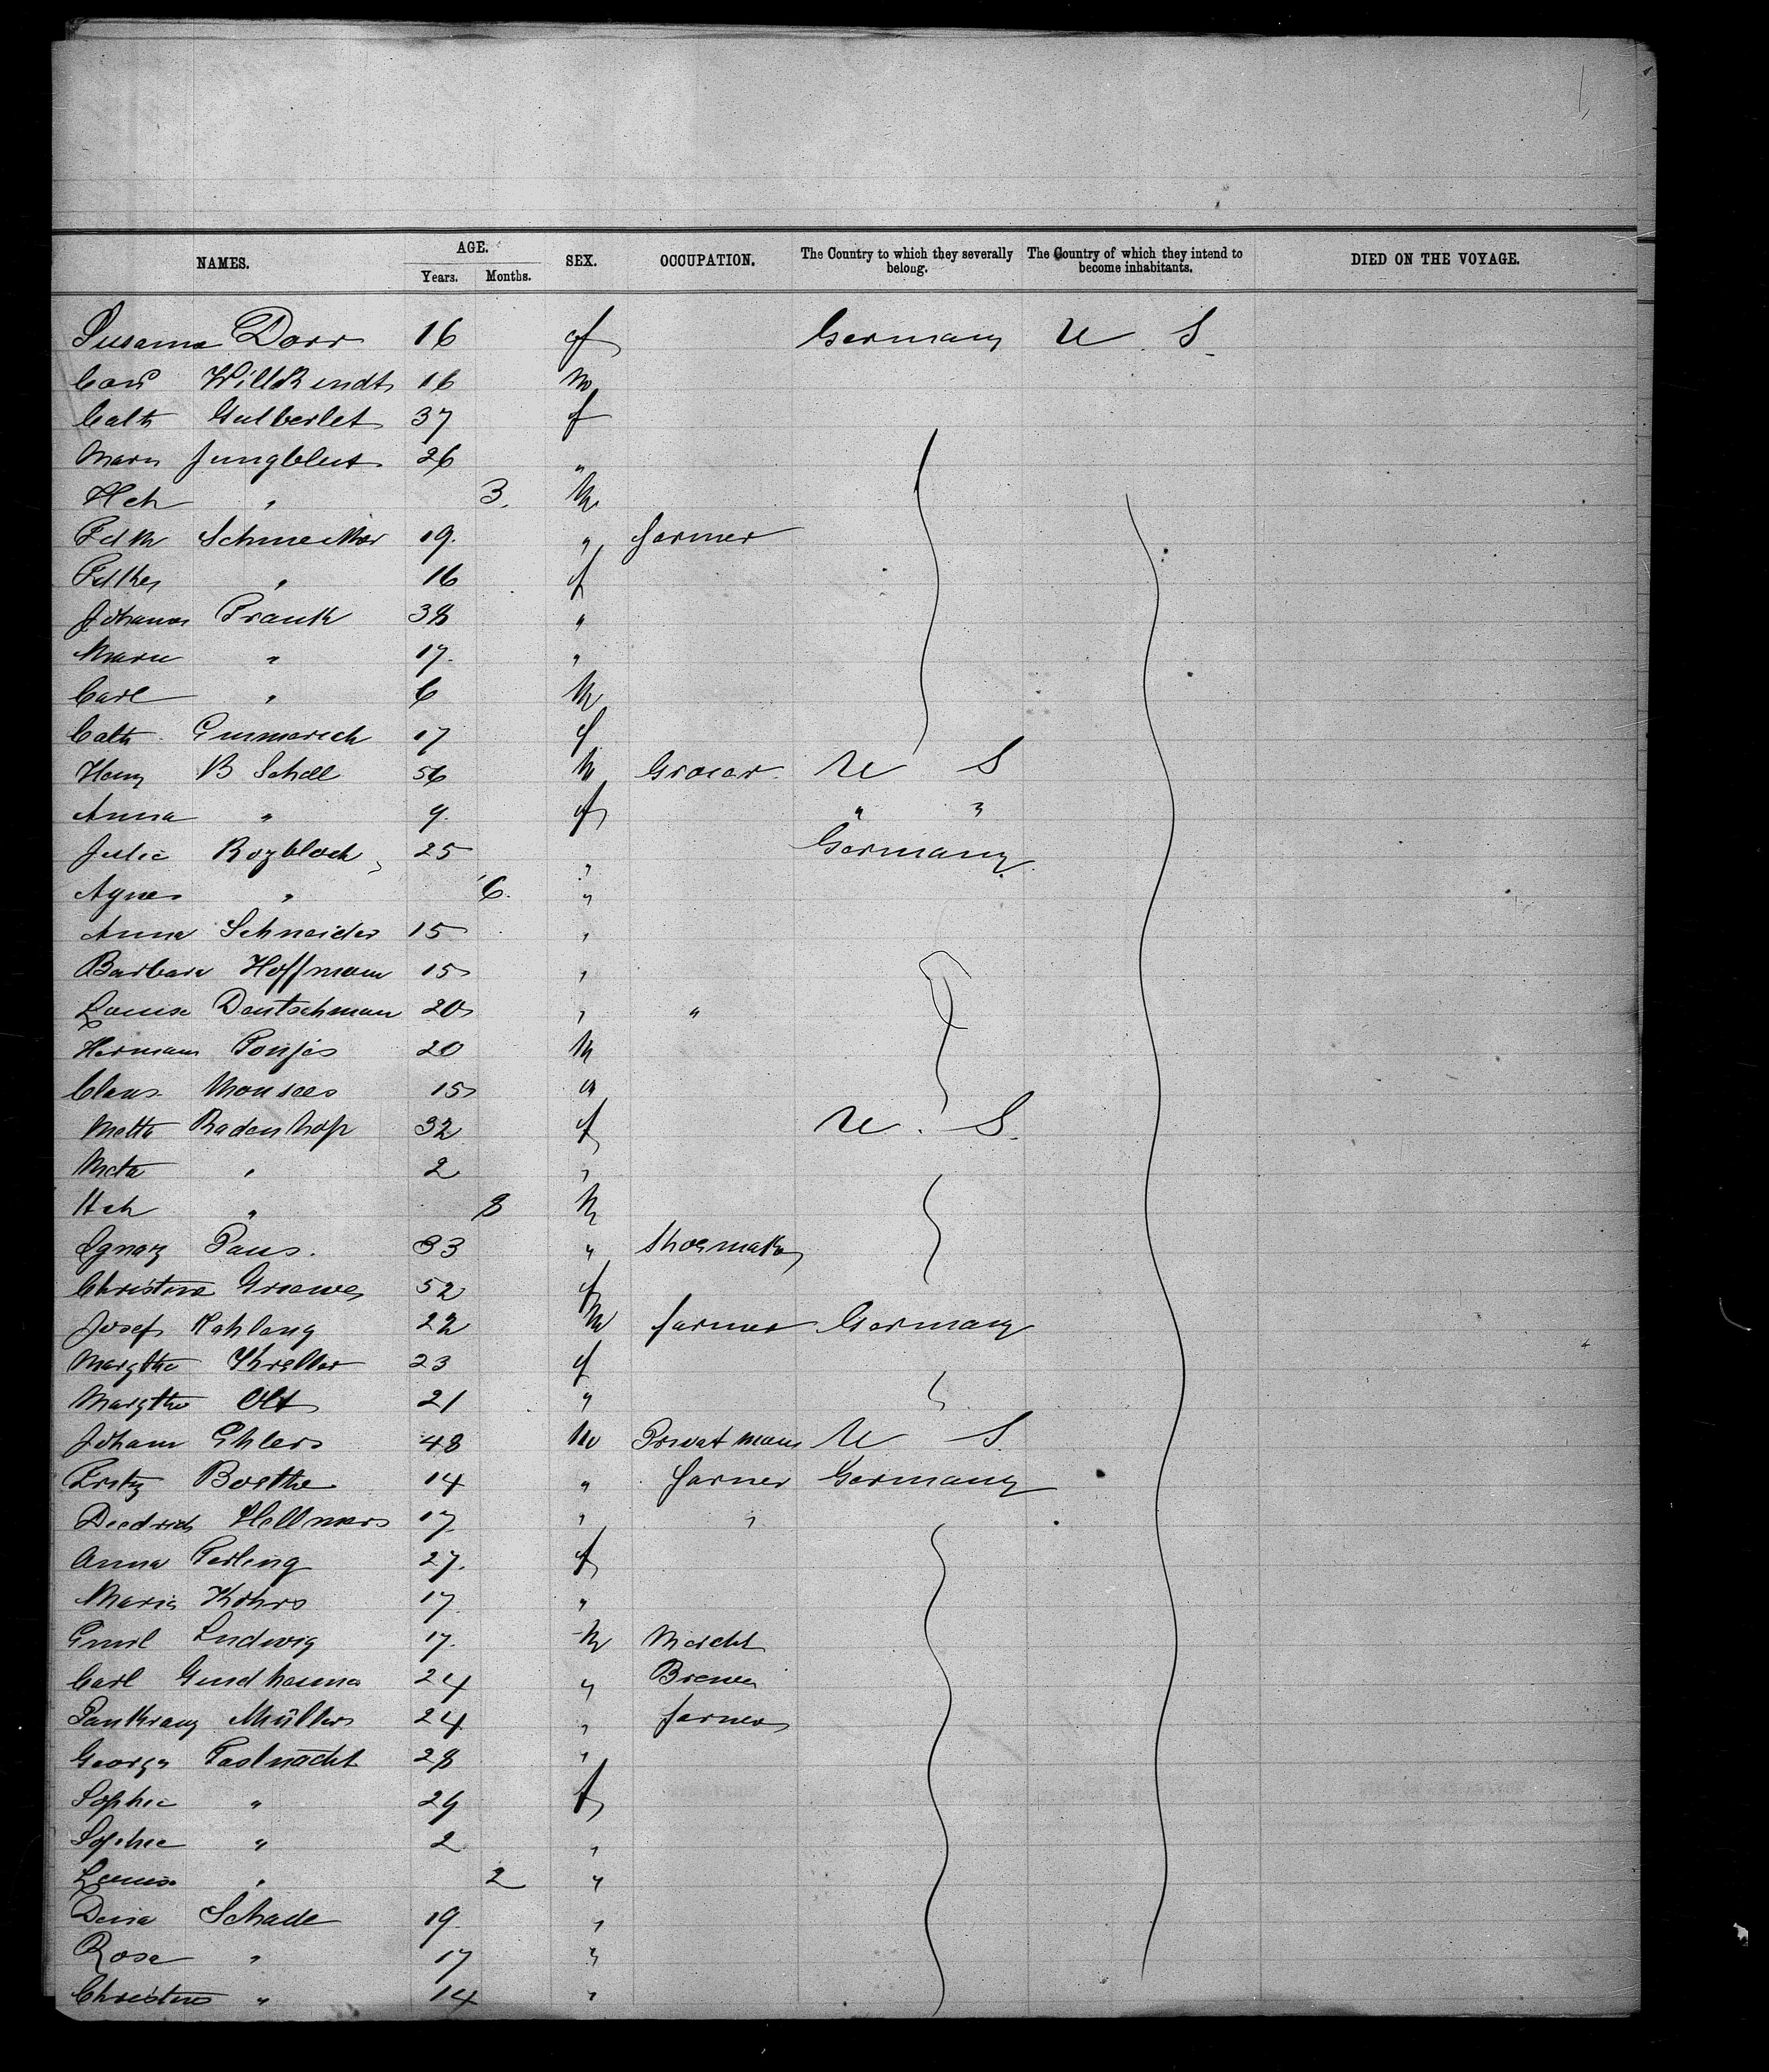 NAMES. AGE. Years. Months. SEX. OCCUPATION. The Country to which they severally belong. The Country of which they intend to become inhabitants. DIED ON THE VOYAGE.
Susanna Dorr 16 f Germany U. S.
Willkendt 16 m
Cath Gutberlet 37 f
Marie Jungblut 26 "
Hch " 3. M
Schmecker 19. " farmer
" 16 f
Johanna Frank 38 "
Marie " 17. "
Carl " 6 M
Cath. Emmerich 17 f
Henry B Schell 56 M Grocer U S
Anna " 9. f " "
Julie Rozbloch 25 " Germany
Agnes " 6. "
Anna Schneider 15 "
Barbara Hoffmann 15 "
Louise Deutschman 20 " "
Hermann Tonjes 20 M
Claus Monsees 15 "
Metta Badenhop 32 f U. S.
Meta " 2 "
Hch " 8 M
Ignaz Paus. 33 " Shoemaker
Christine Greewe 52 f
Josef Kahlang 22 M farmer Germany
Margthe Kreller 23 f
Margthe Olt 21 "
Johann Ehlers 48 M Privatmann U S.
Fritz Boethe 14 " farmer Germany
Diedrich Hellmers 17 " "
Anna Gerling 27. f
Maria Kohrs 17 "
Emil Ludwig 17. M Mercht
Carl 24 " Brewer
Pankraz Müller 24 " farmer
George Fastnacht 28 "
Sophie " 29 f
Sophie " 2 "
Louise " 2 "
Dina Schade 19 "
Rosa " 17 "
Christine " 14 "